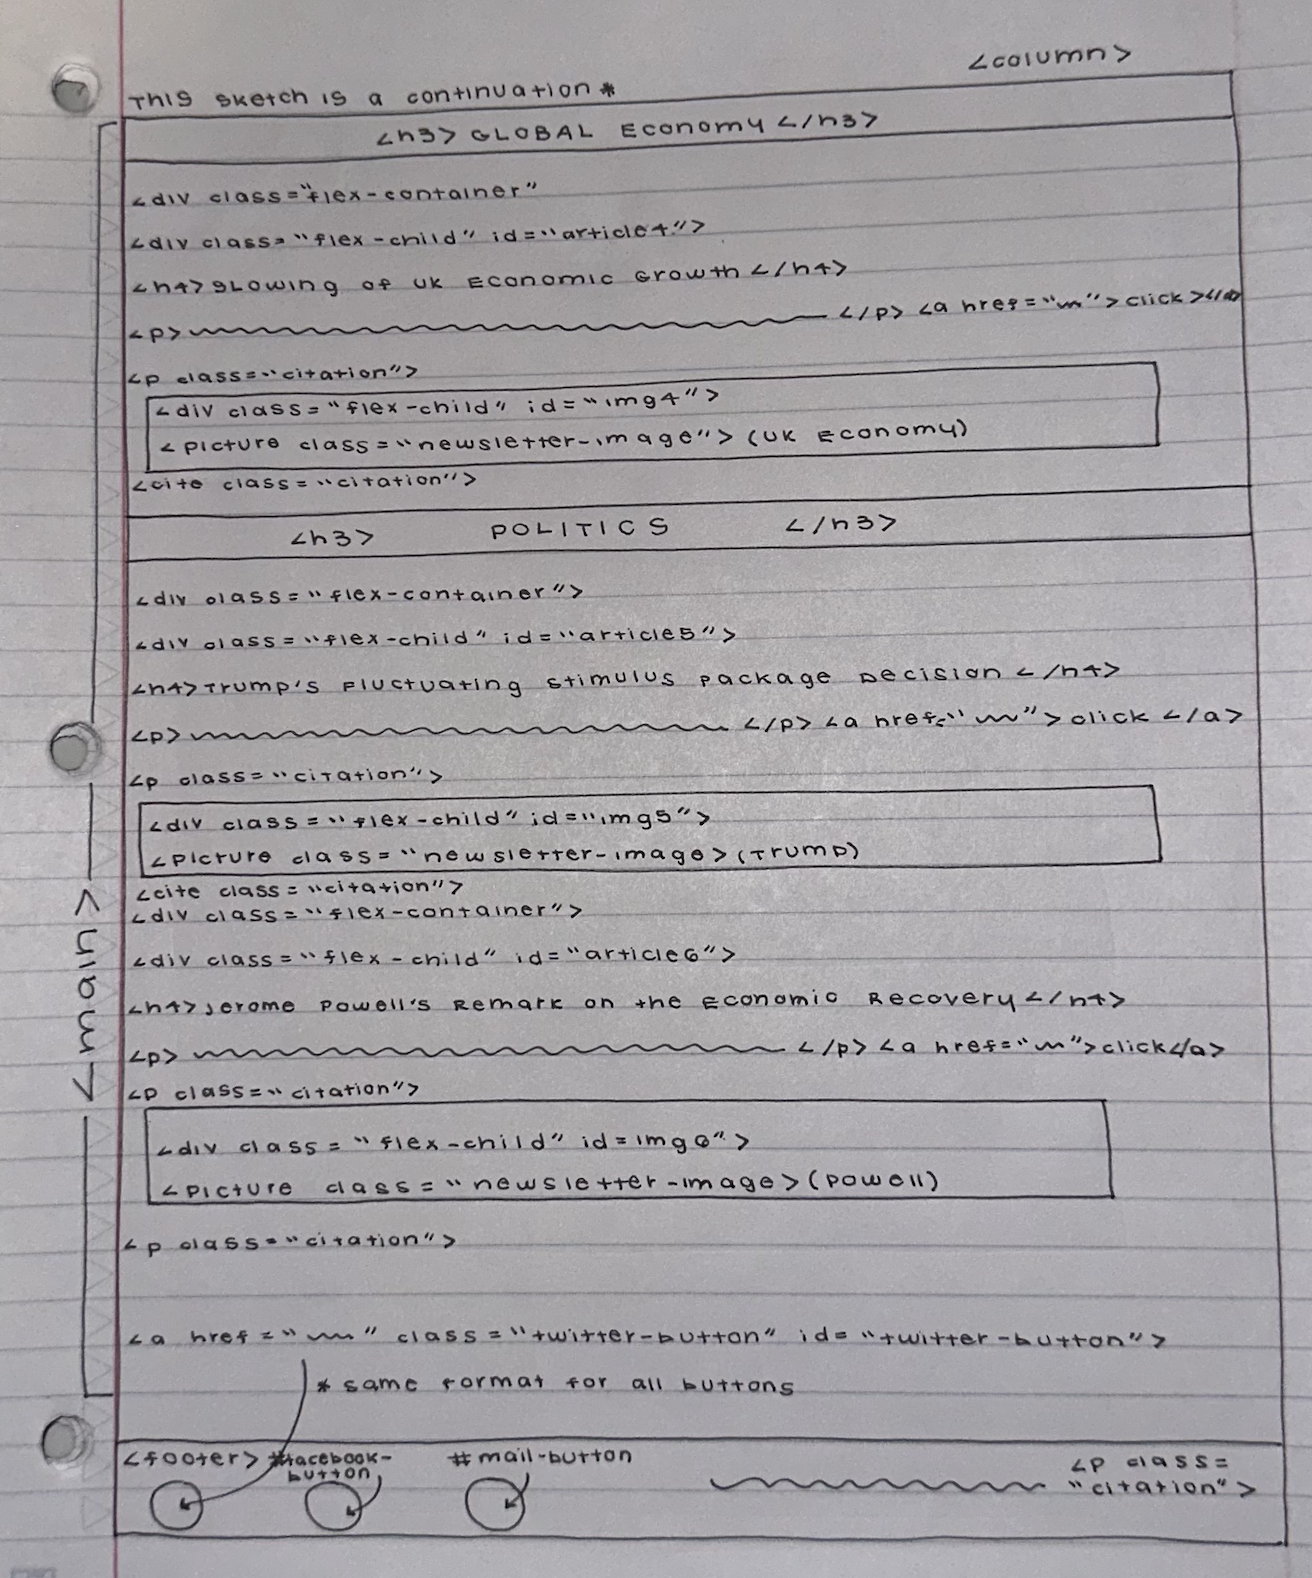 <column>
THIS sketch is a continuation *
<h3> GLOBAL Economy </h3>
<div class="flex-container"
<div class="flex-child" id="article4">
<h4> SLOWING OF UK Economic Growth </h4>
<p> </p> <a href=""> click ></a>
<p class="citation">
<div class="flex-child" id="img4">
<picture class="newsletter-image"> (UK Economy)
<cite class="citation">
<h3> POLITICS </h3>
<div class="flex-container">
<div class="flex-child" id="article5">
<h4> Trump's Fluctuating stimulus package Decision </h4>
<p> </p> <a href=""> click </a>
<p class="citation">
<div class="flex-child" id="img5">
<picture class="newsletter-image> (Trump)
<cite class="citation">
<div class="flex-container">
<main>
<div class="flex-child" id="article6">
<h4> Jerome Powell's Remark on the Economic Recovery </h4>
<p> </p> <a href="">click</a>
<p class="citation">
<div class="flex-child" id=img6">
<picture class="newsletter-image> (Powell)
<p class="citation">
<a href="" class="twitter-button" id="twitter-button">
* same format for all buttons
<footer> #facebook-button #mail-button <p class="citation">